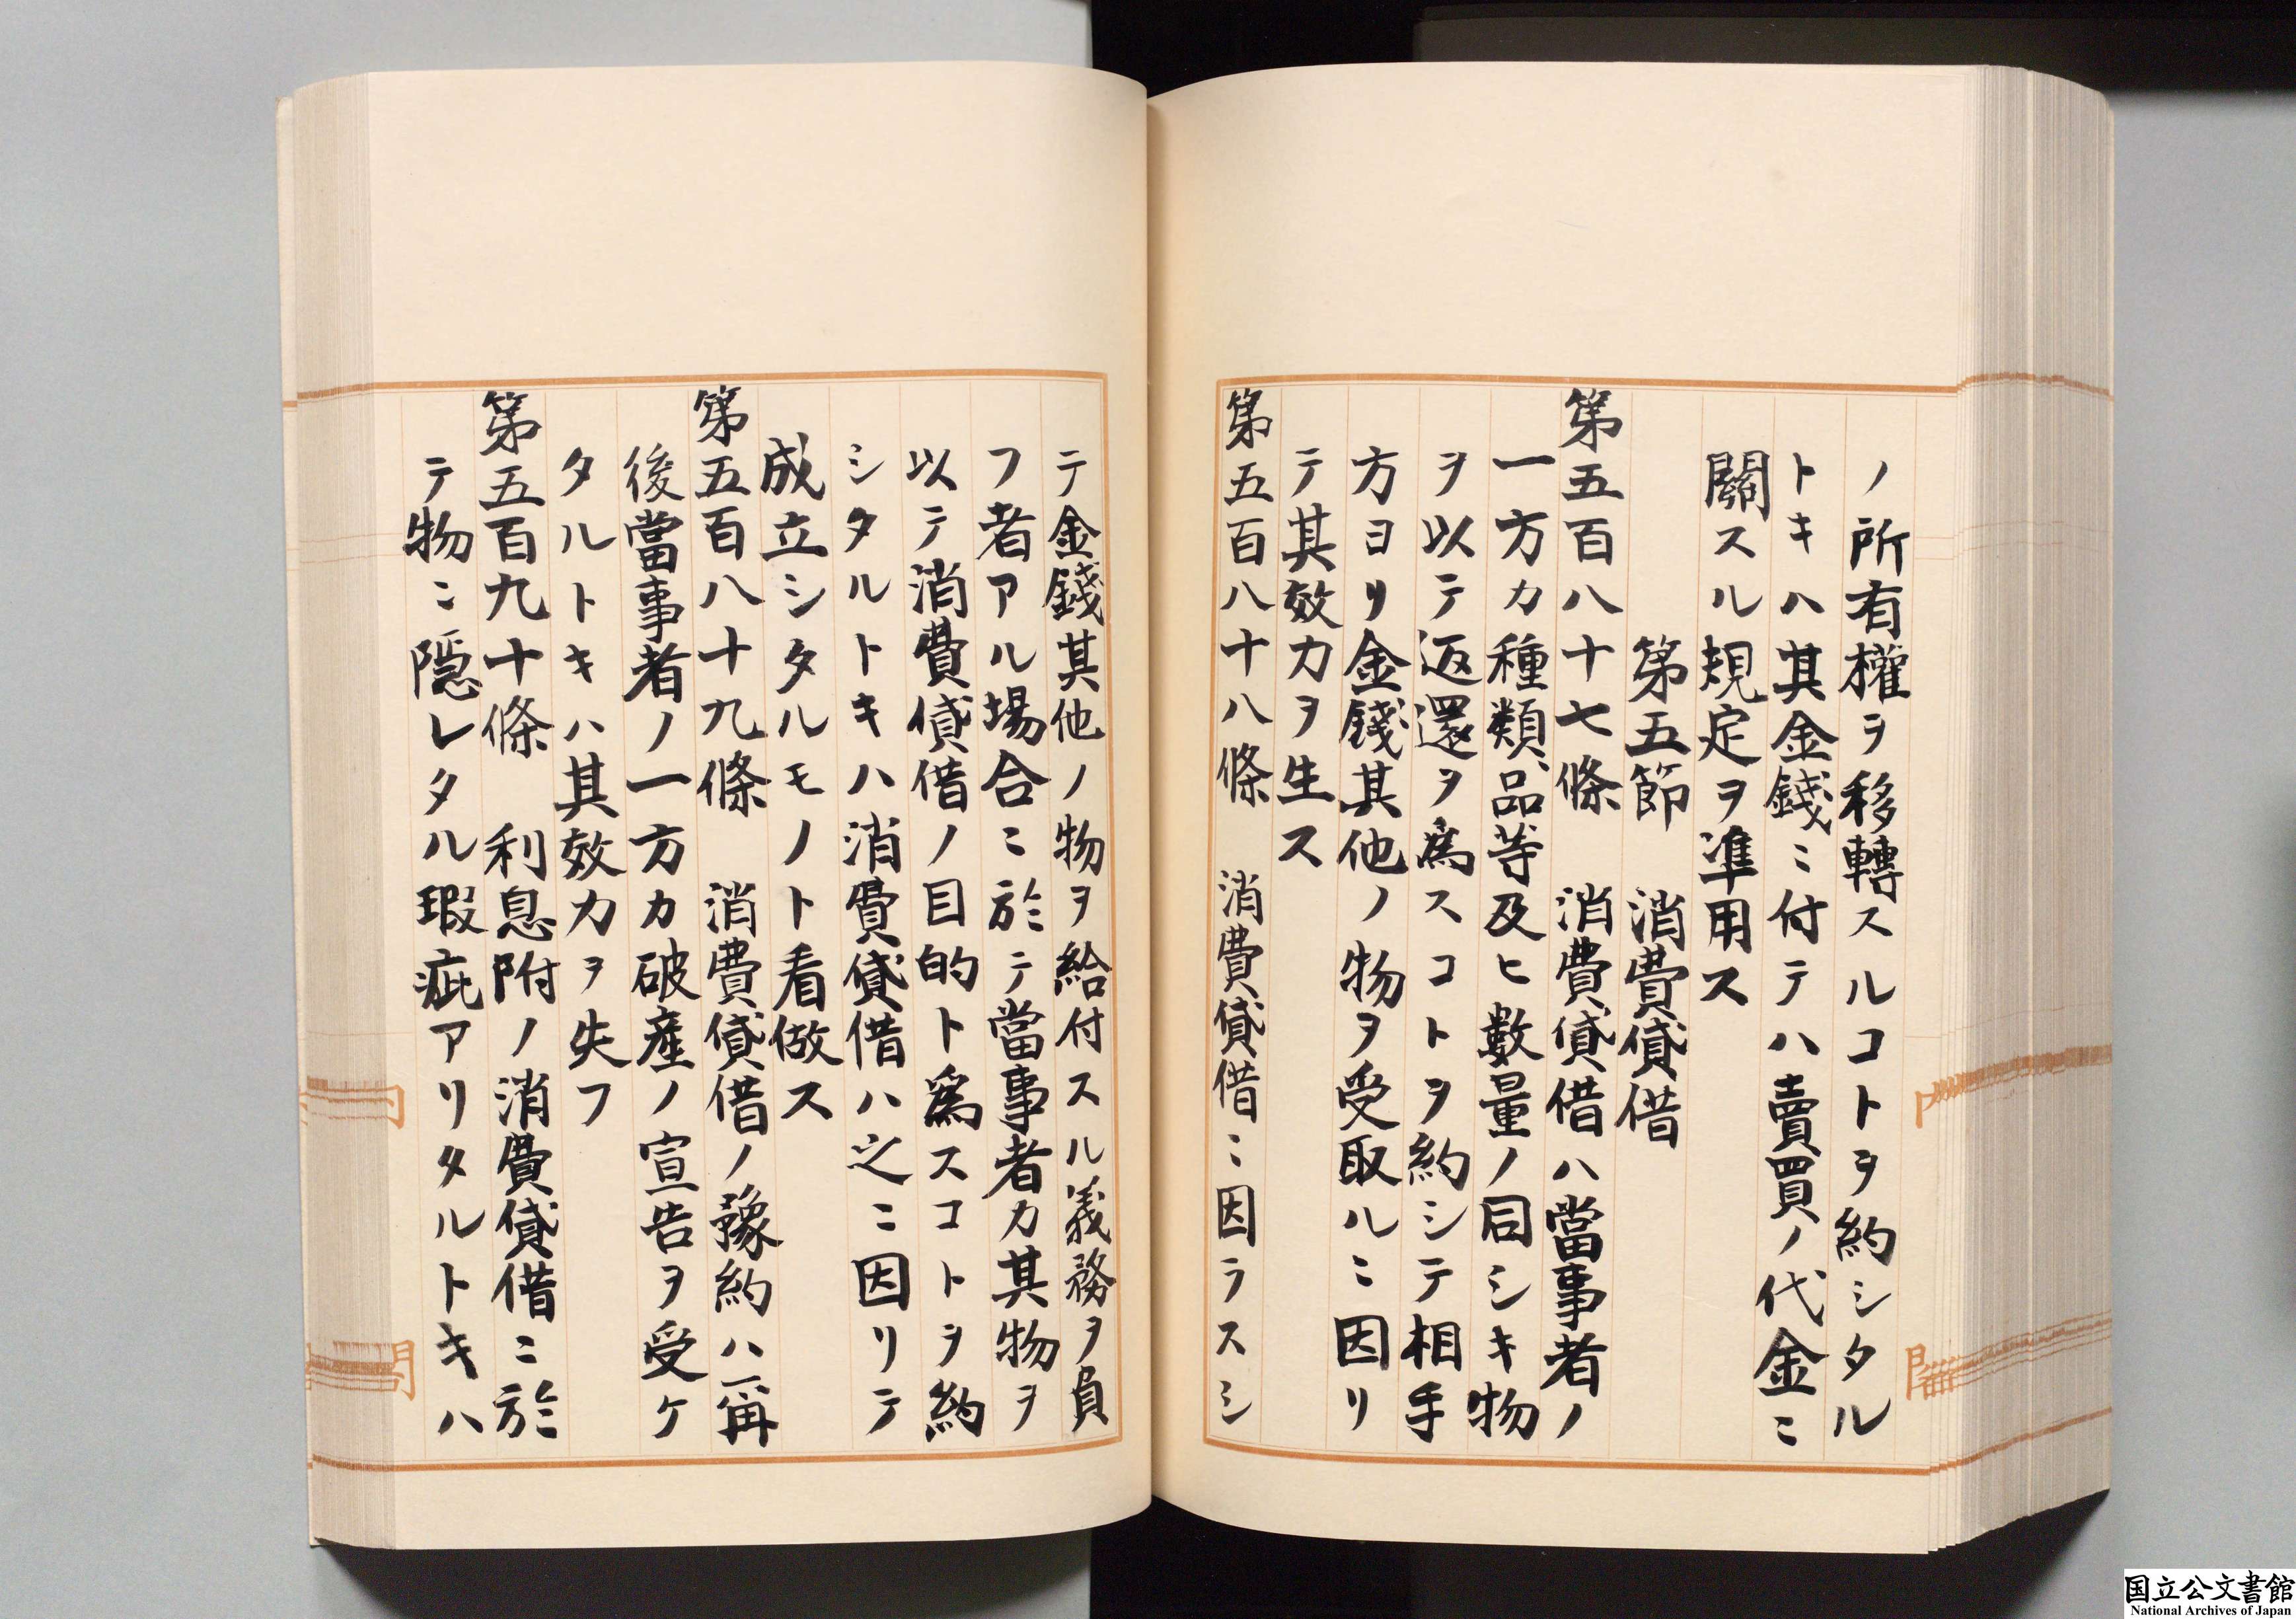 ノ所有權ヲ移轉スルコトヲ約シタル
トキハ其金錢ニ付テハ賣買ノ代金ニ
關スル規定ヲ準用ス
第五節　消費貸借
第五百八十七條　消費貸借ハ當事者ノ
一方カ種類、品等及ヒ數量ノ同シキ物
ヲ以テ返還ヲ爲スコトヲ約シテ相手
方ヨリ金錢其他ノ物ヲ受取ルニ因リ
テ其效力ヲ生ス
第五百八十八條　消費貸借ニ因ラスシ
テ金錢其他ノ物ヲ給付スル義務ヲ負
フ者アル場合ニ於テ當事者カ其物ヲ
以テ消費貸借ノ目的ト爲スコトヲ約
シタルトキハ消費貸借ハ之ニ因リテ
成立シタルモノト看做ス
第五百八十九條　消費貸借ノ豫約ハ爾
後當事者ノ一方カ破產ノ宣告ヲ受ケ
タルトキハ其效力ヲ失フ
第五百九十條　利息附ノ消費貸借ニ於
テ物ニ隱レタル瑕疵アリタルトキハ
国立公文書館
National Archives of Japan